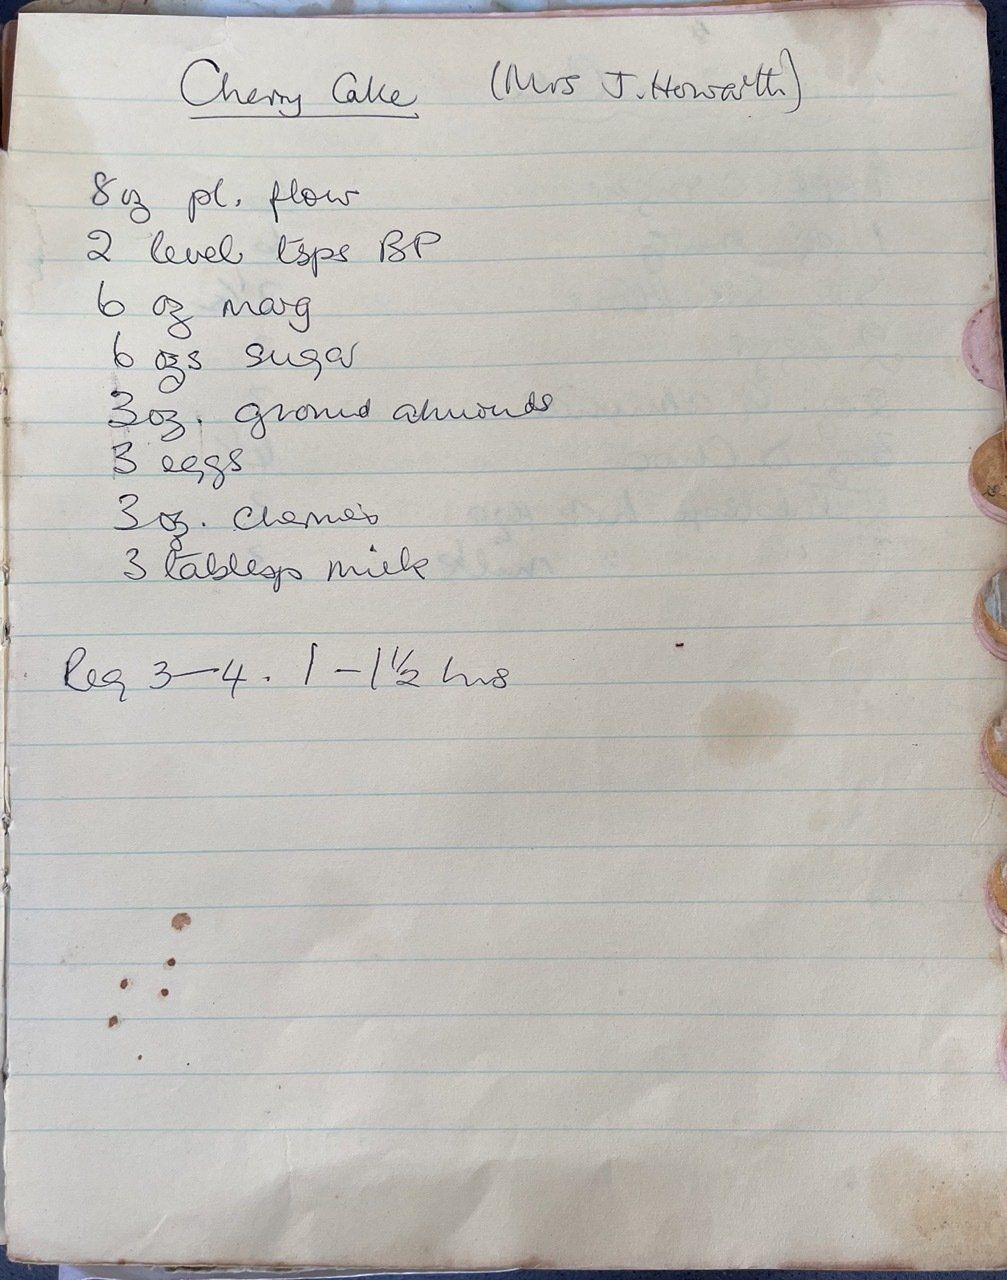 Cherry Cake (Mrs J. Howarth)
8 oz pl. flour
2 level tsps BP
6 oz marg
6 ozs sugar
3 oz. ground almonds
3 eggs
3 oz. cherries
3 tablesp milk
Reg 3-4. 1-1½ hrs